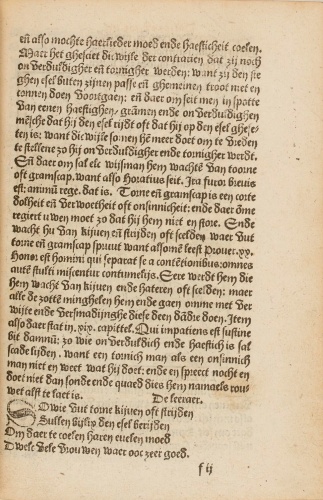 eñ also mochte haerlieder moed ende haesticheit coelen.
Maer het ghesciet dicwijse der contrarien dat zij noch
onverduldigher eñ tornigher werden: want zij den sie
ghen esel buten zijnen passe eñ ghemeinen troot niet en
connen doen voortgaen: eñ daer om seit men in spotte
van eenen haestighen, grammen ende onverduldighen
mēsche dat hij den esel rijdt oft dat hij op den esel ghese-
ten is: want dicwijse sonen hē meer doet om te vreden
te stellene zo hij onverduldigher ende tornigher werdt.
Eñ daer om sal ele wijsman hem wachtē van toorne
oft gramscap. want also Horatius seit. Ira furor brevis
est: animū rege. dat is. Torne eñ gramscap is een corte
dolheit eñ verwoetheit oft onsinnicheit: ende daer ōme
regiert uwen moet zo dat hij hem niet en store. Ende
wacht hu van kijven eñ strijden oft scelden, waer vut
torne eñ gramscap spruut want alsomē leest Prouer. xx.
Honor est homini qui separat se a contētionibus: omnes
autē stulti miscentur contumelijs. Eere werdt hem die
hem wacht van kijven ende hateren oft scelden: maer
alle de zotte minghelen hem ende gaen omme met ver
wijte ende versmadijnghe diese deen dādre doen. Item
also daer stat in .xix. capittel. Qui impatiens est sustine
bit damnū: zo wie onverduldich ende haestich is sal
scade lijden. want een tornich man als een onsinnich
man niet en weet wat hij doet: ende en spreect nocht en
doet niet dan sonde ende quaed dies hem namaels rou-
wet alst te laet is. De leeraer.
SOwie vut torne kijven oft strijden
Sullen bijster den esel berijden
Om daer te coelen haren evelen moed
Dwele vele vrouwen waer oor zeer goed.
f ij